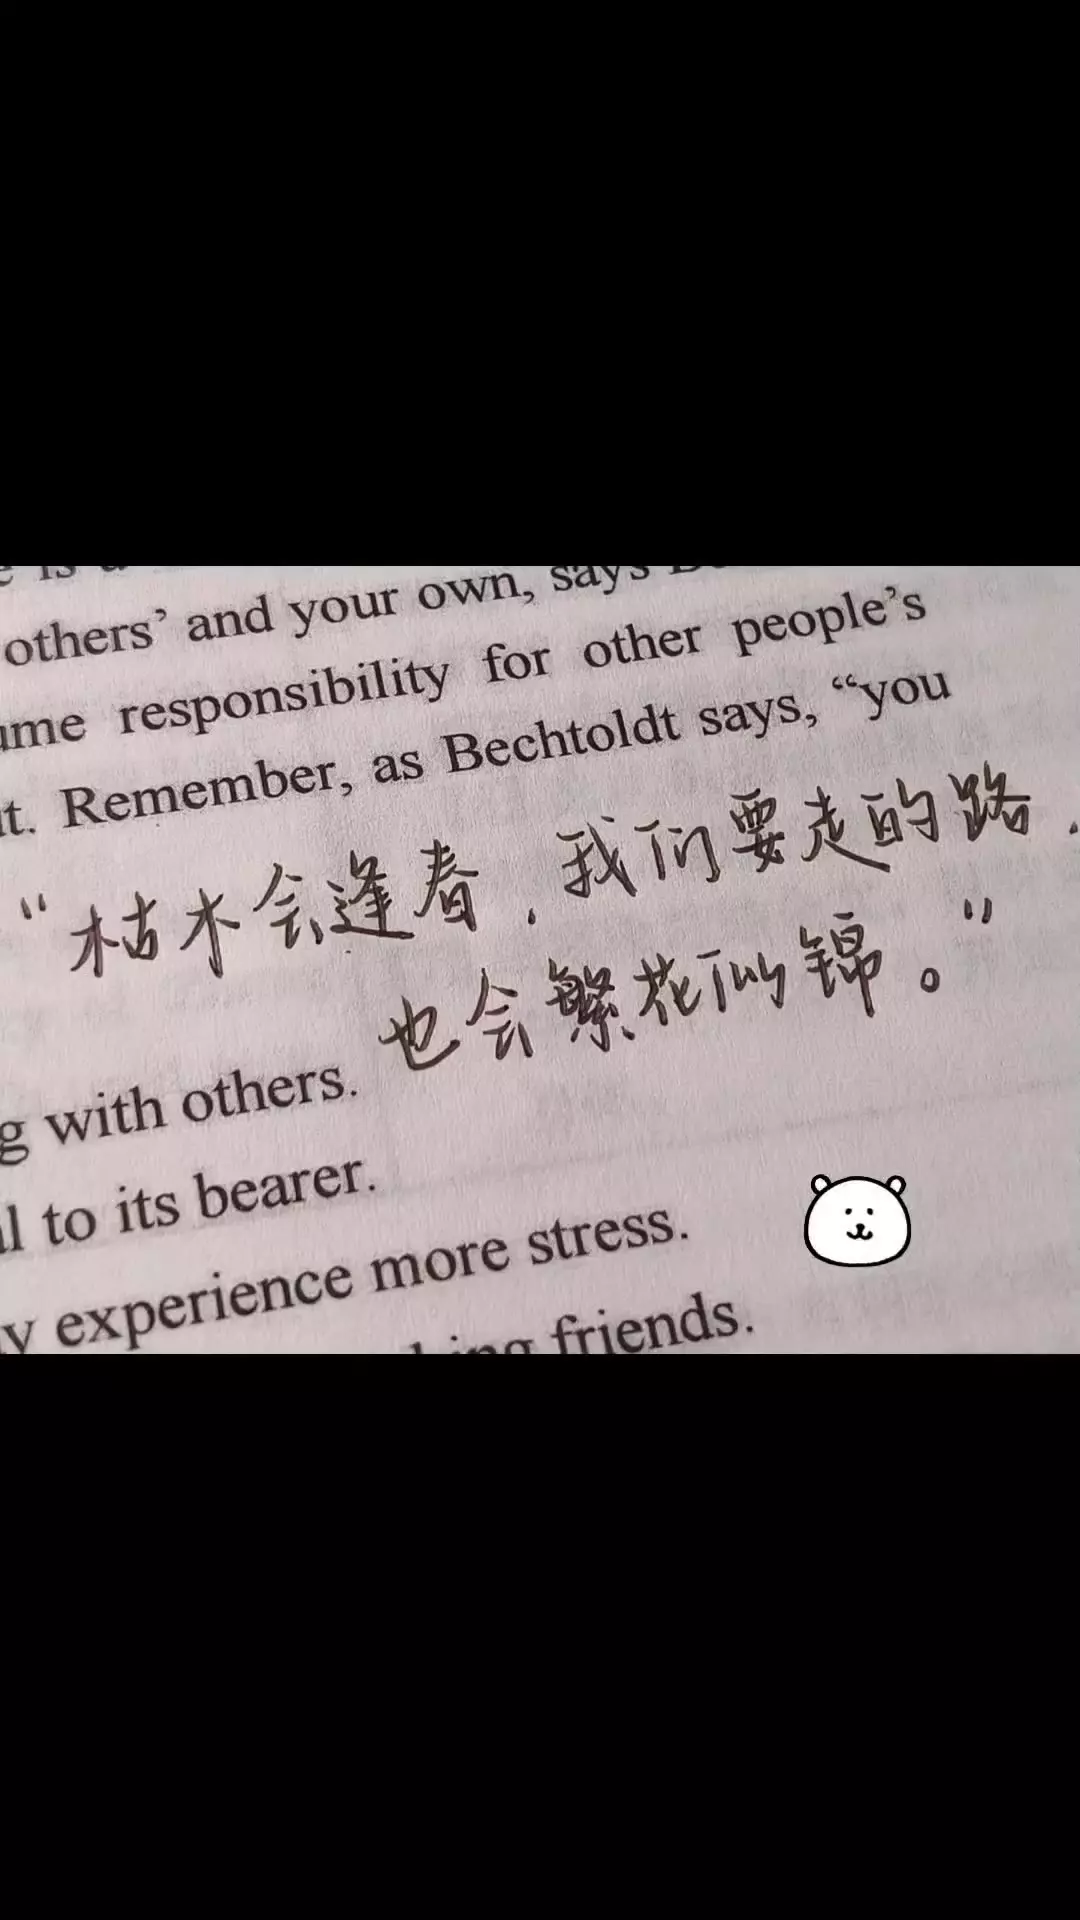 others’ and your own, says
responsibility for other people’s
t. Remember, as Bechtoldt says, “you
“枯木会逢春，我们要走的路，
也会繁花似锦。”
g with others.
l to its bearer.
y experience more stress.
friends.